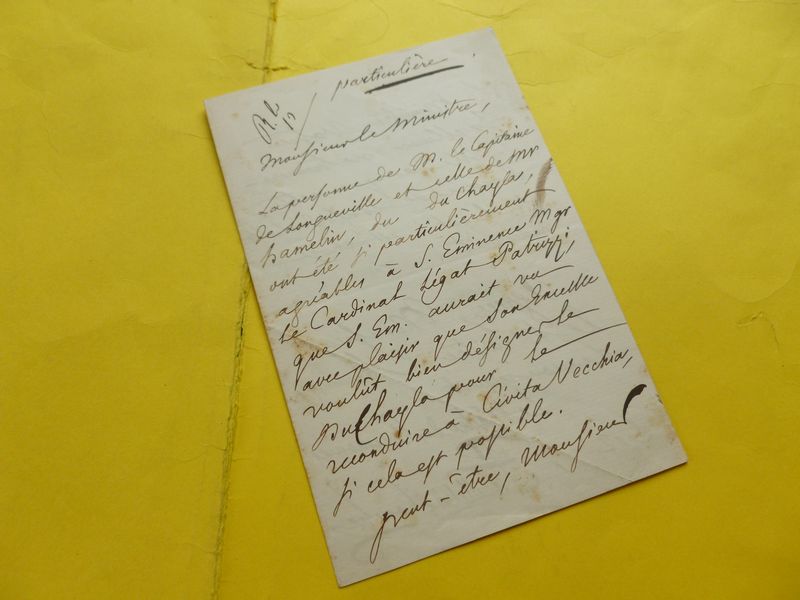 particulière.
Monsieur le Ministre,
La personne de M. le Capitaine
de Longueville et celle de Mr
hamelin, du du Chayla,
ont été si particulièrement
agréables à S. Eminence Mgr
le Cardinal Légat Patrizzi
que S. Em. aurait vu
avec plaisir que Son Excellce
voulût bien désigner le
DuChayla pour le
reconduire à Civita Vecchia,
si cela est possible.
peut-être, Monsieur